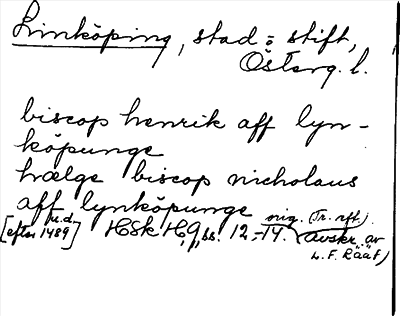 Linköping, stad o stift,
Österg. l.
biscop henrik aff lyn-
köpunge
hælge biscop nicholaus
aff lynköpunge orig. (Tr. rft.).
[efter 1489] u.d. HSk H,9, ss. 12-14. (avskr. av
L. F. Rääf)